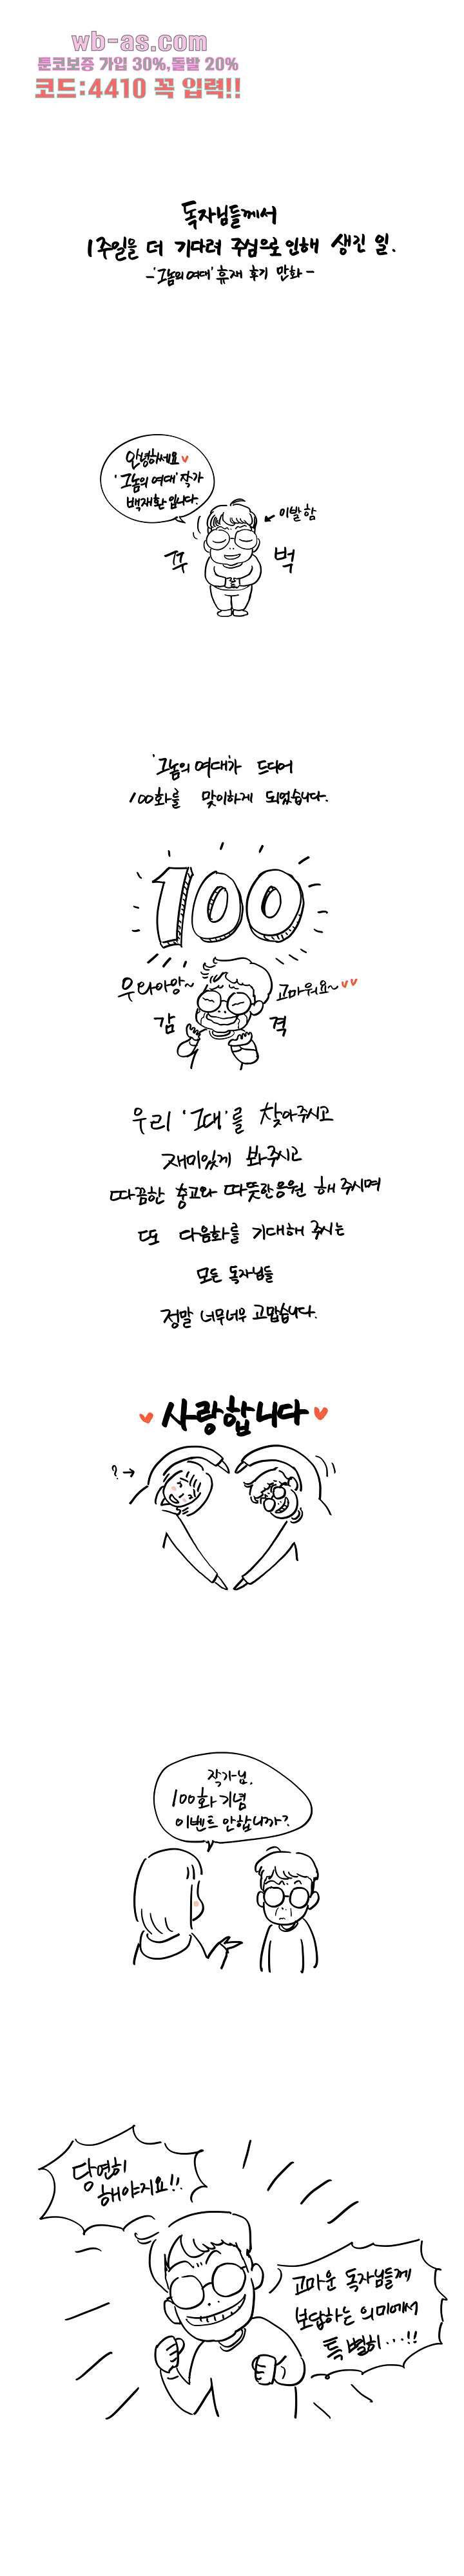 wb-as.com
툰코보증 가입 30%,돌발 20%
코드:4410 꼭 입력!!
독자님들께서
1주일을 더 기다려 주심으로 인해 생긴 일.
-'그놈의 여대' 휴재 후기 만화-
안녕하세요♥
'그놈의 여대' 작가
백재환 입니다.
이발함
꾸 벅
'그놈의 여대'가 드디어
100화를 맞이하게 되었습니다.
100
우리아앙~
고마워요~♥♥
감 격
우리 '그대'를 찾아주시고
재미있게 봐주시고
따끔한 충고와 따뜻한 응원 해 주시며
또 다음화를 기대해 주시는
모든 독자님들
정말 너무너무 고맙습니다.
♥ 사랑합니다 ♥
?→
작가님.
100화 기념
이벤트 안합니까?
당연히
해야지요!!
고마운 독자님들께
보답하는 의미에서
특별히...!!